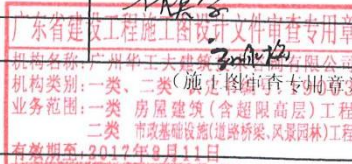 广东省建设工程施工图设计文件审查专用章
机构名称:广州华工大建筑 有限公司
(施工图审查专用章)
机构类别:一类、二类
业务范围:一类 房屋建筑(含超限高层)工程
二类 市政基础设施(道路桥梁、风景园林)工程
有效期至:2017年8月11日